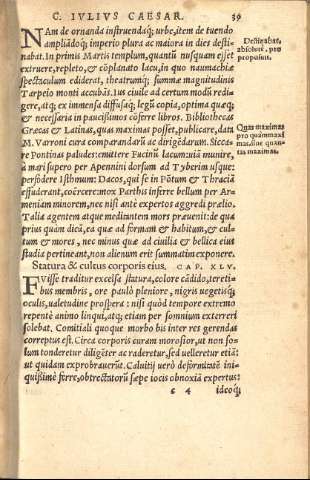 C. IVLIVS CAESAR. 39
NAm de ornanda instruendaq; urbe, item de tuendo
ampliādoq; imperio plura ac maiora in dies desti-
nabat. In primis Martis templum, quantū nusquam esset
extruere, repleto, & cōplanato lacu, in quo naumachiæ
spectaculum ediderat, theatrumq; summæ magnitudinis
Tarpeio monti accubās. Ius ciuile ad certum modū redi-
gere, atq; ex immensa diffusaq; legū copia, optima quæq;
& necessaria in paucissimos cōferre libros. Bibliothecas
Græcas & Latinas, quas maximas posset, publicare, data
M. Varroni cura comparandarū ac dirigēdarum. Sicca-
re Pontinas paludes: emittere Fucinū lacum: uiā munire,
à mari supero per Apennini dorsum ad Tyberim usque:
perfodere Isthmum: Dacos, qui se in Pōtum & Thraciā
effuderant, coërcere: mox Parthis inferre bellum per Ar-
meniam minorem, nec nisi ante expertos aggredi prælio.
Talia agentem atque meditantem mors præuenit: de qua
prius quàm dicā, ea quæ ad formam & habitum, & cul-
tum & mores, nec minus quæ ad ciuilia & bellica eius
studia pertineant, non alienum erit summatim exponere.
Statura & cultus corporis eius. CAP. XLV.
FVisse traditur excelsa statura, colore cādido, tereti-
bus membris, ore paulò pleniore, nigris uegetisq;
oculis, ualetudine prospera: nisi quòd tempore extremo
repentè animo linqui, atq; etiam per somnium exterreri
solebat. Comitiali quoque morbo bis inter res gerendas
correptus est. Circa corporis curam morosior, ut non so-
lum tonderetur diligēter ac raderetur, sed uelleretur etiā:
ut quidam exprobrauerūt. Caluitij uerò deformitatē ini-
quissimè ferre, obtrectatorū sæpe iocis obnoxiā expertus:
c 4 ideoq;
Destinabat,
absolutè, pro
proposuit.
Quas maximas
pro quàm maxi
mas, siue quan-
tas maximas.